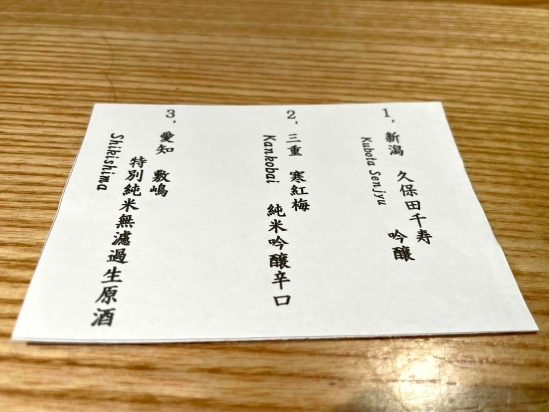 1, 新潟 久保田千寿
吟醸
Kubota Senjyu
2, 三重 寒紅梅
純米吟醸辛口
Kankobai
3, 愛知 敷嶋
特別純米無濾過生原酒
Shikishima